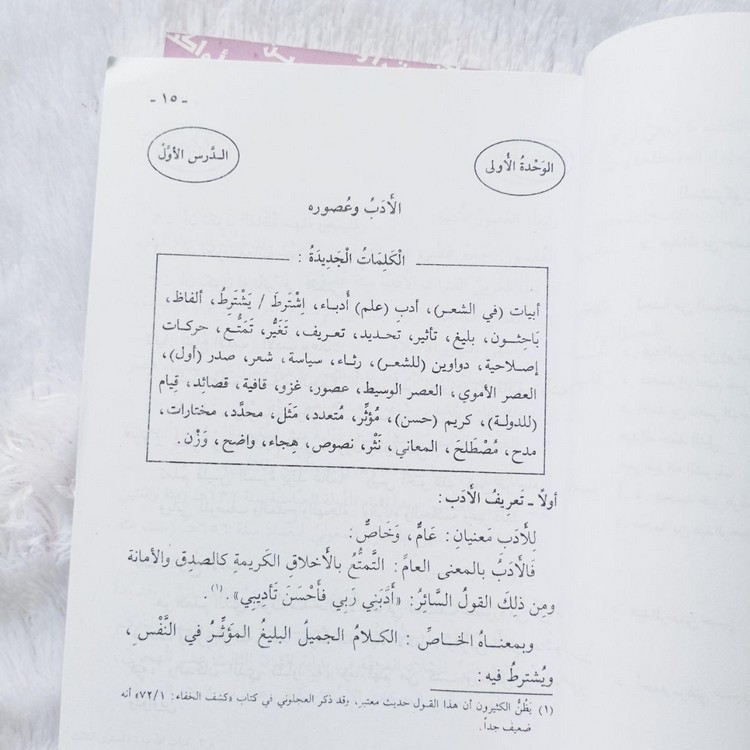 - ١٥ -
الوَحْدةُ الأُولى
الـدَّرس الأوَّلْ
الأَدَبُ وعُصوره
الْكَلِمَاتُ الْجَدِيدَةُ :
أبيات (في الشعـر)، أدب (علم) أُدبـاء، اِشْتَرطَ / يَشْتَرِطُ، ألفاظ،
بَاحِثـــون، بليغ، تأثير، تحـديـد، تعـريف، تَغَيُّر، تَمَتُّـع، حركات
إصـلاحية، دواوين (للشعـر)، رثـاء، سياسة، شعر، صدر (أول)،
العصر الأموي، العصر الوسيط، عصور، غزو، قافية، قصائِد، قِيام
(للدولـة)، كريم (حسن)، مُؤثِّر، مُتعدد، مَثَل، محدَّد، مختارات،
مدح، مُصْطَلَحَ، المعاني، نَثْر، نصوص، هِجاء، واضح، وَزْن.
أولاً ـ تَعرِيفُ الأَدَب:
لِلأَدَبِ مَعنيانِ: عَامٌّ، وَخَاصٌّ:
فَالأَدَبُّ بالمعنى العامِّ: التَّمتُّعُ بالأَخلاقِ الكَريمةِ كالصدِق والأَمانة
ومِن ذلِكَ القولُ السَّائرُ: «أَدَّبَنِي رَبِي فأَحْسَنَ تَأدِيبي».(١).
وبمعنـاهُ الخـاصِّ : الكلامُ الجميلُ البليغُ المؤَثِّـرُ في النَّفْسِ،
ويُشترطُ فيه:
(١) يَظُنُّ الكثيرون أن هذا القول حديث معتبر، وقد ذكر العجلوني في كتاب «كشف الخفاء: ٧٢/١» أنه
ضعيف جداً.